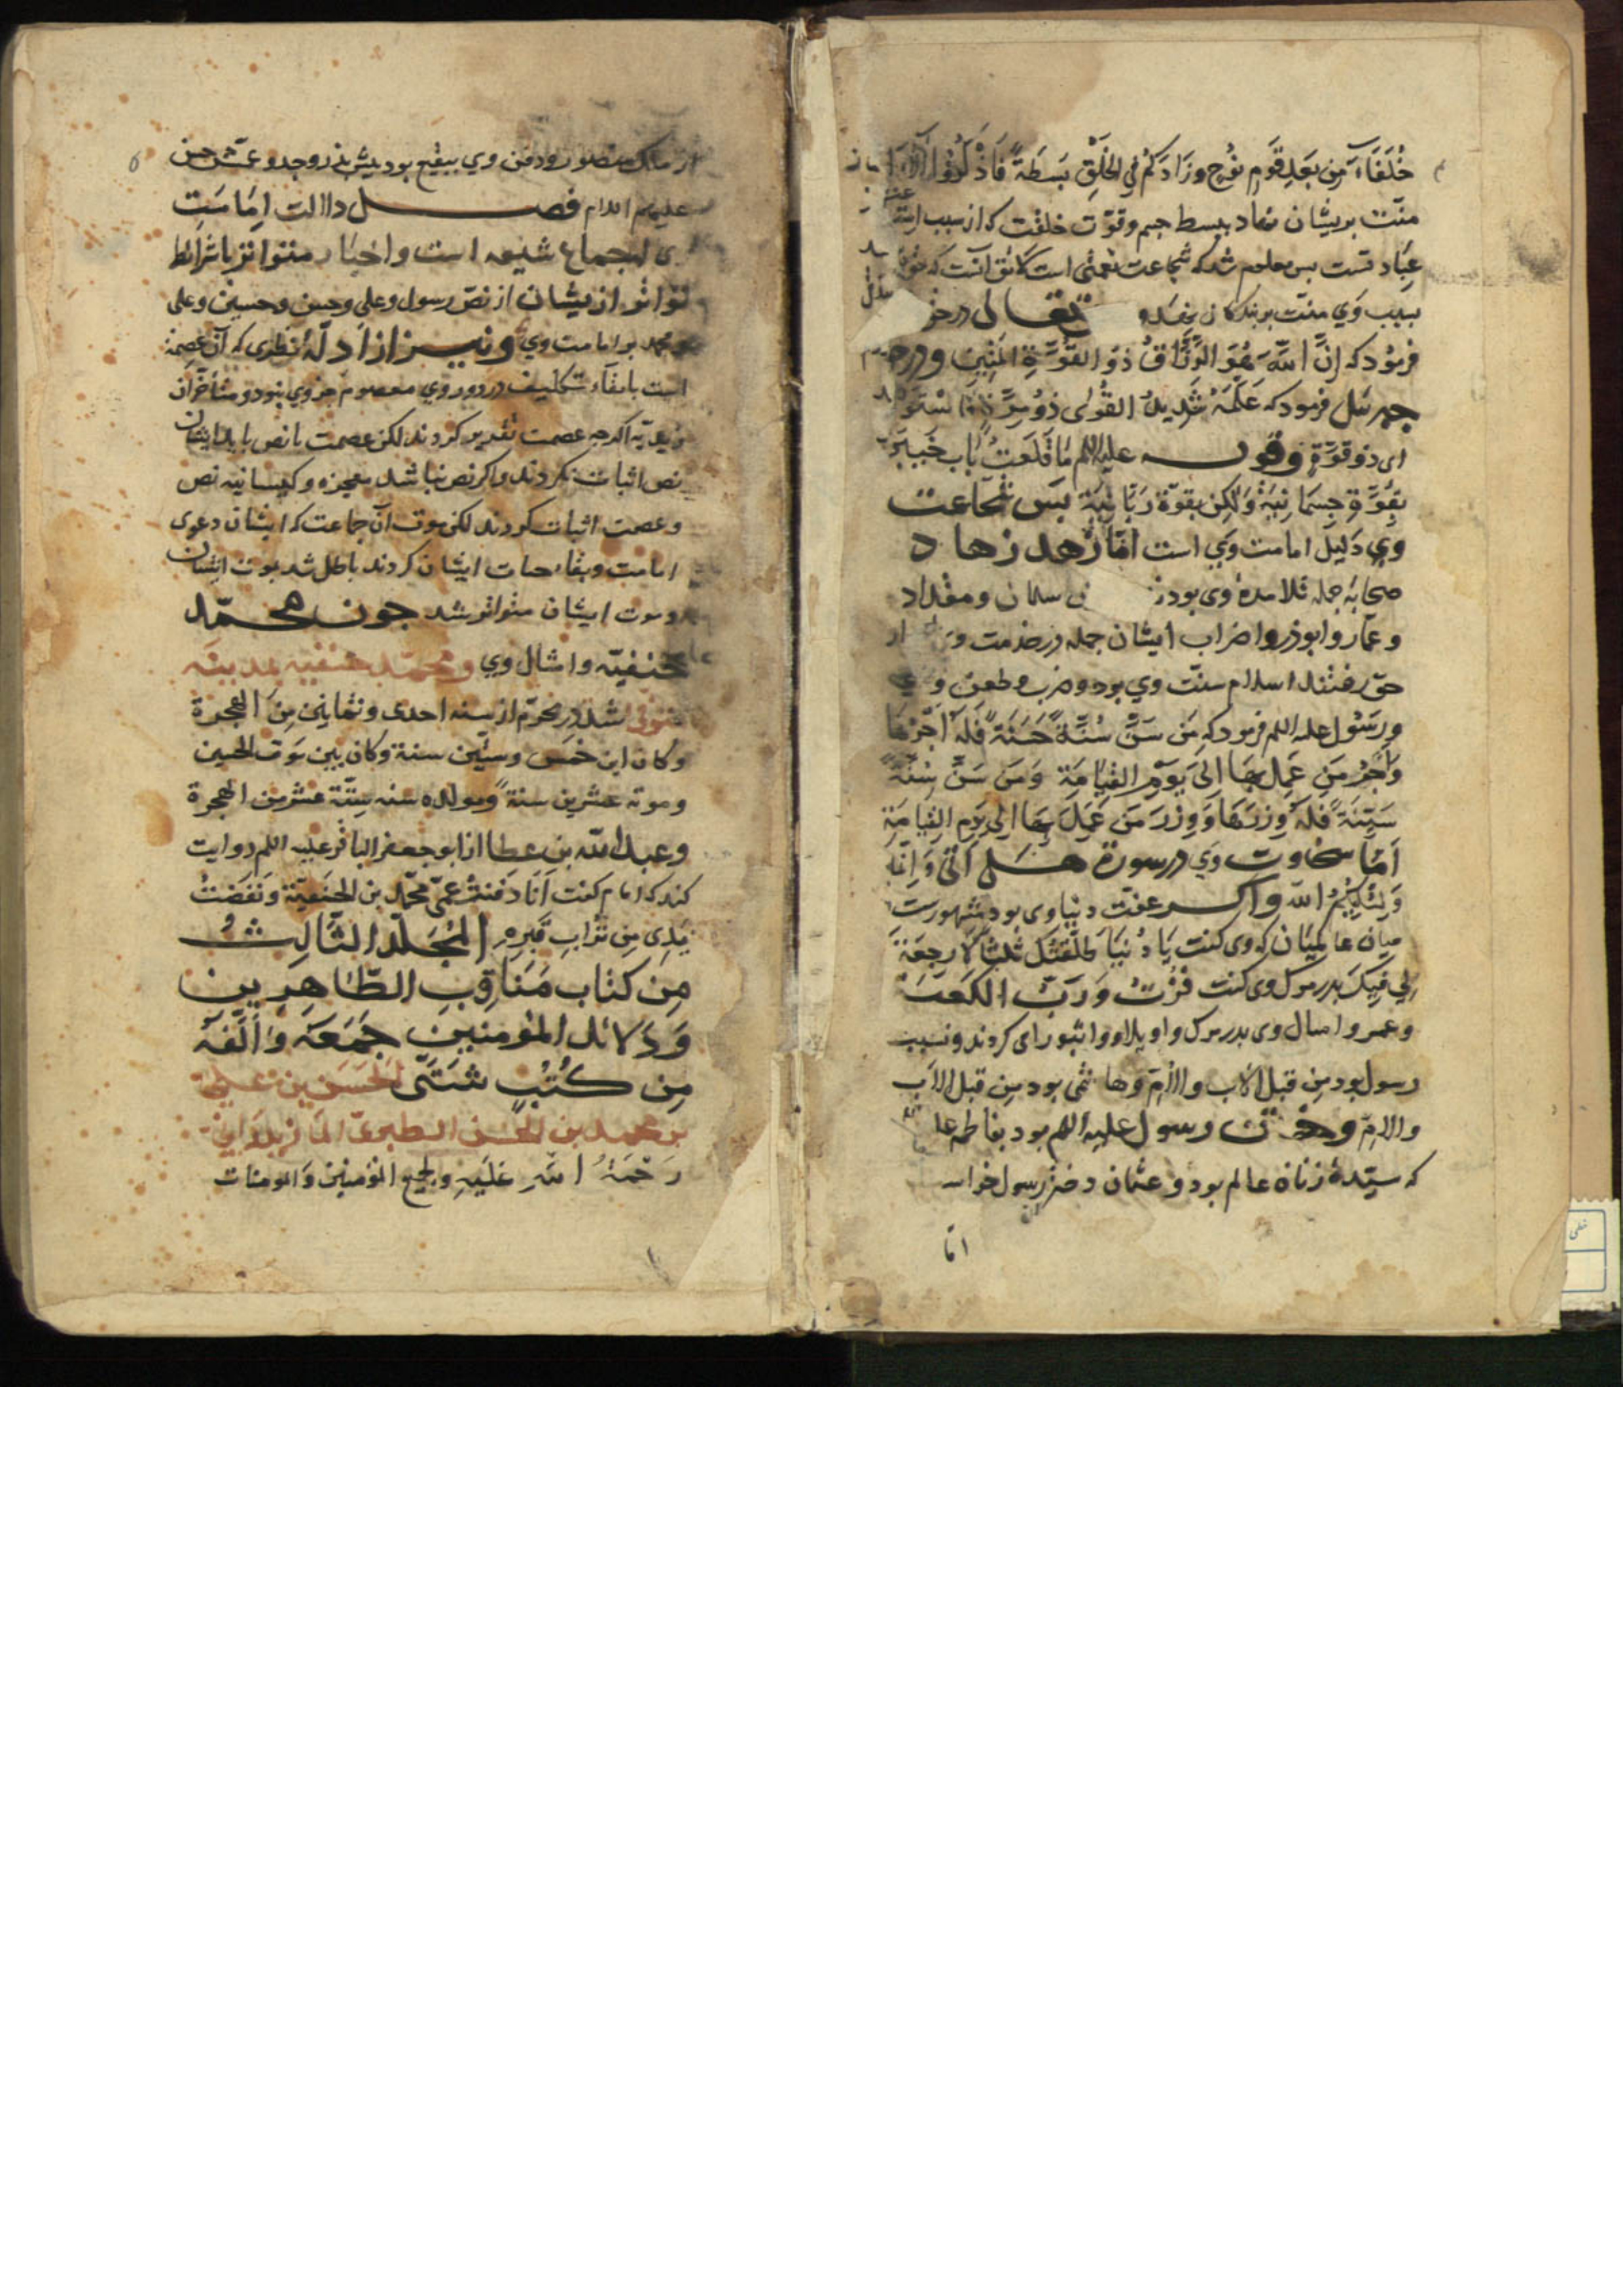 خُلَفَاءَ مِن بَعدِ قَومِ نُوحٍ وزَادَكُم فِي الخَلْقِ بَسطَةً فَاذْكُرُوا آلَاءَ
منّت بریشان نهاد ببسط جسم وقوّت خلقت که از سبب
عِبَاد تست بس معلوم شد که شجاعت نعمتی است که
بسبب وَي منّت بر بندکان نهد و تعالی در
فرمود که اِنَّ اللّهَ هُوَ الرَّزَّاقُ ذُو القُوَّةِ المَتِينِ ودر
جبرئیل فرمود که عَلَّمَهُ شَدِيدُ القُوٰی ذُو مِرَّةٍ فَاسْتَوَی
ای ذو قوّةٍ وقول علیه اللم مَا قَلَعتُ بَاب خَيبَرَ
بِقُوَّةٍ جِسمَانِيَةٍ وَلٰكِن بقوّة رَبَّانِيَّة بس شجاعت
وی دَلیل امامت وَی است امّا زُهد زهاد
صحابه جمله تلامذهٔ وی بودند سلمان ومقداد
وعمّار وابوذر واضراب ایشان جمله در خدمت
حق رفتند اسلام سنّت وي بود وضرب وطعن
ورسُول علیه اللم فرمود که مَن سَنَّ سُنَّةً حَسَنَةً فَلَهُ اَجْرُهَا
وَاَجْرُ مَن عَمِلَ بِهَا اِلَی يَوْمِ القِيَامَةِ وَمَن سَنَّ سُنَّةً
سَيِّئَةً فَلَهُ وِزرُهَا وَوِزرُ مَن عَمِلَ بِهَا اِلی يَومِ القِيَامَةِ
اَمّا سخاوت وَي در سورة هَل اَتٰی وَ اِنَّمَا
وَلِيُّكُمُ اللّه واکر عفّت دنیا وی بود مشهورست
میان عالمیان که وی کفت يَا دُنيَا طَلَّقتُكِ ثلثًا لَا رجعَةَ
لِي فِيكِ بدر مرک وی کفت فُزْتُ وَرَبِّ الكَعبَة
وعمر وامثال وی بدر مرک واویلا وواثبورای کردند ونسیب
رسول بود مِن قبل الاب والاُمّ وهاشمی بود مِن قبل الاَب
والامّ وختن رسول علیه اللم بود بفاطمه عا
که سیّدهٔ زنان عالم بود وعثمان دختر رسول خواست
امّا
از ملک منصور ودفن وي ببقیع بود بیش بذر وجد وعمّش حسن
علیهم اللام فصل دلالت اِمامَتِ
وی اجماع شیعه است واخبار متواتر باشرائط
تواتر ازیشان از نصّ رسول وعلی وحسن وحسین وعلی
ومحمد بر امامت وی ونیز از اَدلّهٔ نظری که آن عصمة
است بابقاء تکلیف در دور وي معصوم جز وي نبود ومتأخّران
زیدیّه اکرچه عصمت تقدیر کردند لکن عصمت بانص باید ایشان
نص اثبات نکردند واکر نص نباشد معجزه وکیسانیه نص
وعصمت اثبات کردند لکن موت آن جماعت که ایشان دعوی
امامت وبقاء حیات ایشان کردند باطل شد بموت ایشان
وموت ایشان متواتر شد جون محمّد
حنفیّه وامثال وي ومحمّد حنفیه بمدینه
متوفی شد در محرّم از سنه احدی وثمانین مِنَ الهجرة
وکان ابن خمس وسِتّین سنة وکان بین مَوت الحسین
وموته عشرین سنةً ومولده سنه سِتّة عشر من الهجرة
وعبد اللّه بن عطا از ابو جعفر الباقر علیه اللم روایت
کند که امام کفت اَنَا دَفَنتُ عمّی محمّد بن الحنَفیّة وَنَفَضتُ
یَدِی مِن تُرَابِ قَبرِهِ المُجَلَّد الثَّالِثُ
مِن کتاب مَنَاقِبِ الطَّاهِرِین
وَدَلائل المؤمنین جَمَعَهُ وَاَلَّفَهُ
مِن كُتُبٍ شَتَّی الحَسَن بن علی
بن محمد بن الحسن الطبری المازندرانی
رَحْمَةُ اللّهِ عَلَیهِ ولجمیع المؤمنین والمومنات